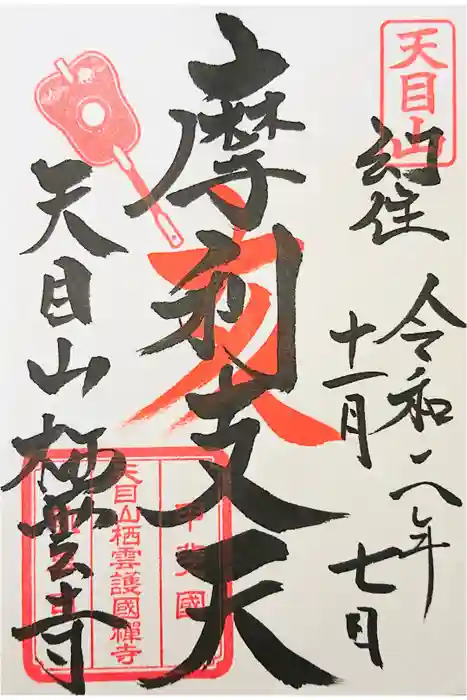 天目山
幻住
令和二年
十一月七日
摩利支天
天目山栖雲寺
甲斐國
天目山栖雲護國禪寺